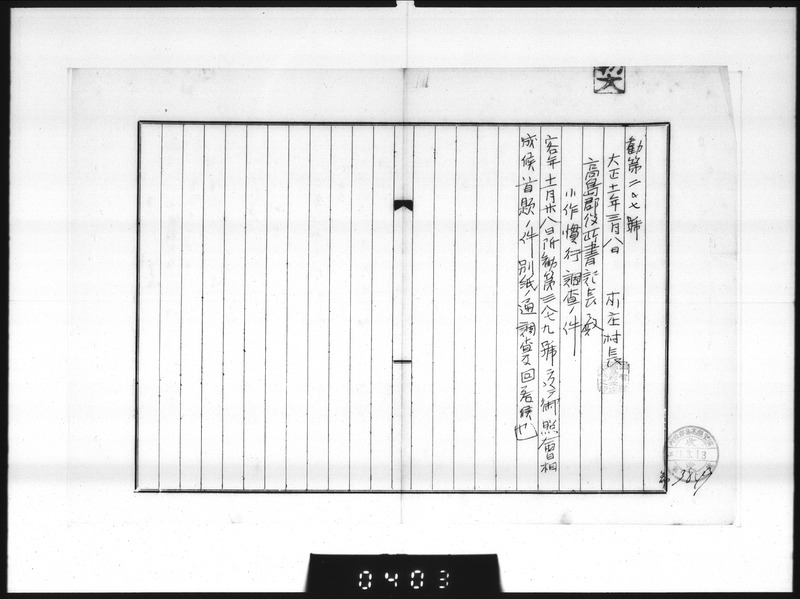 勸第二〇七號
大正十一年三月八日 本庄村長
高島郡役所書記長殿
小作慣行調査ノ件
客年十一月廿八日附勸第三八七九號ヲ以テ御照會相
成候首題ノ件別紙ノ通調査及回答候也
11.3.13
第
0403